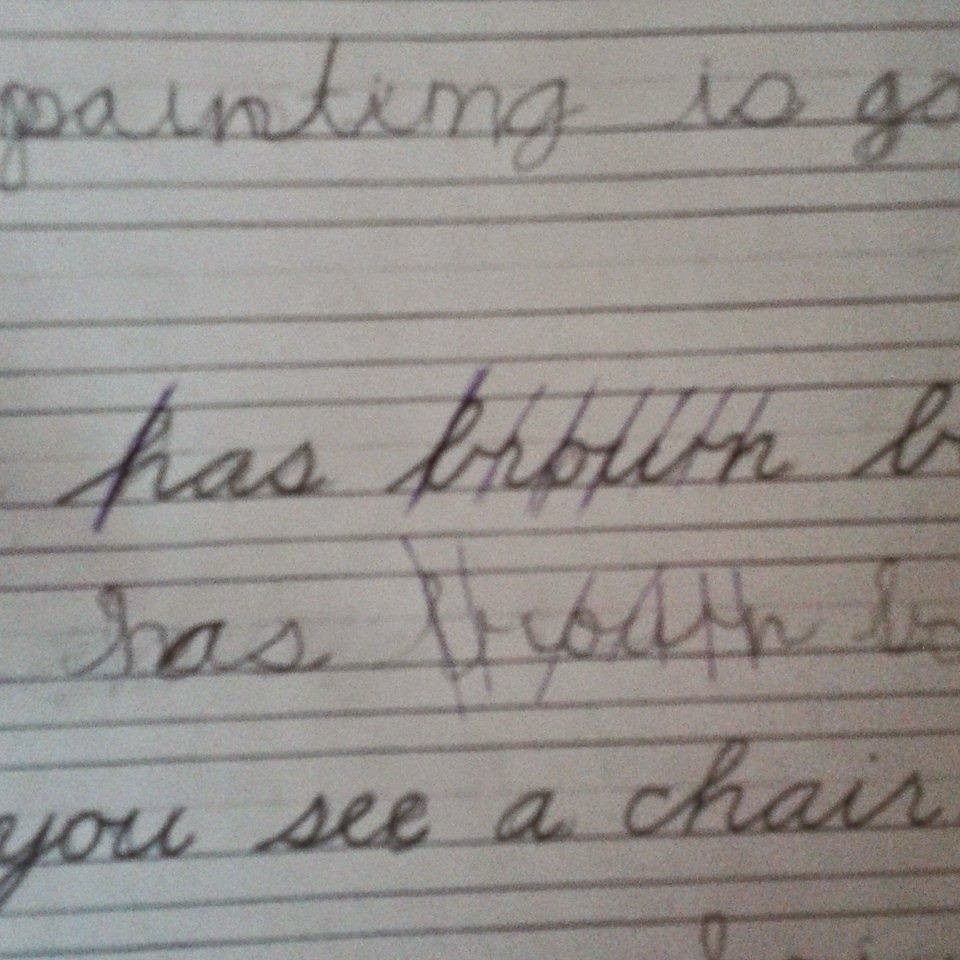 painting is go
has brown b
has brown b
you see a chair